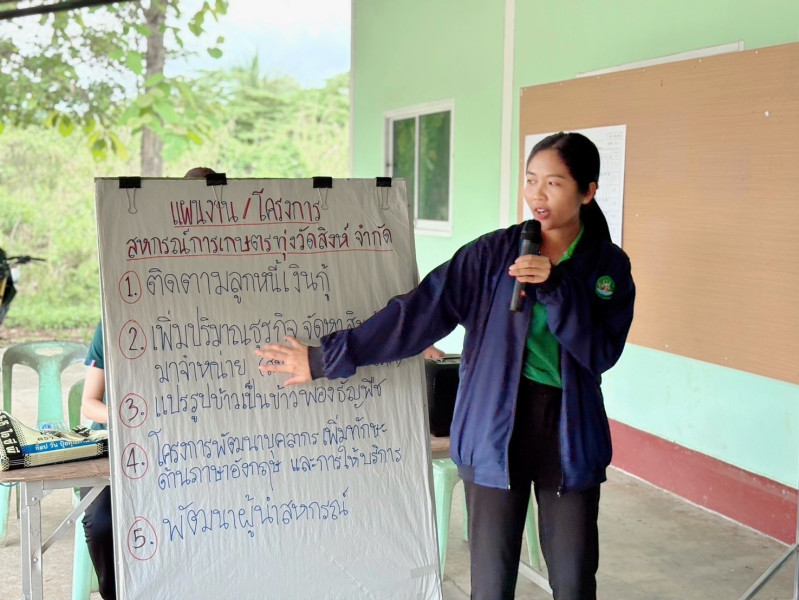 แผนงาน / โครงการ
สหกรณ์การเกษตรทุ่งวัดสิงห์ จำกัด
1. ติดตามลูกหนี้เงินกู้
2. เพิ่มปริมาณธุรกิจ จัดหา
มาจำหน่าย
3. แปรรูปข้าวเป็นข้าวพองธัญพืช
4. โครงการพัฒนาบุคลากร เพิ่มทักษะ
ด้านภาษาอังกฤษ และการให้บริการ
5. พัฒนาผู้นำสหกรณ์